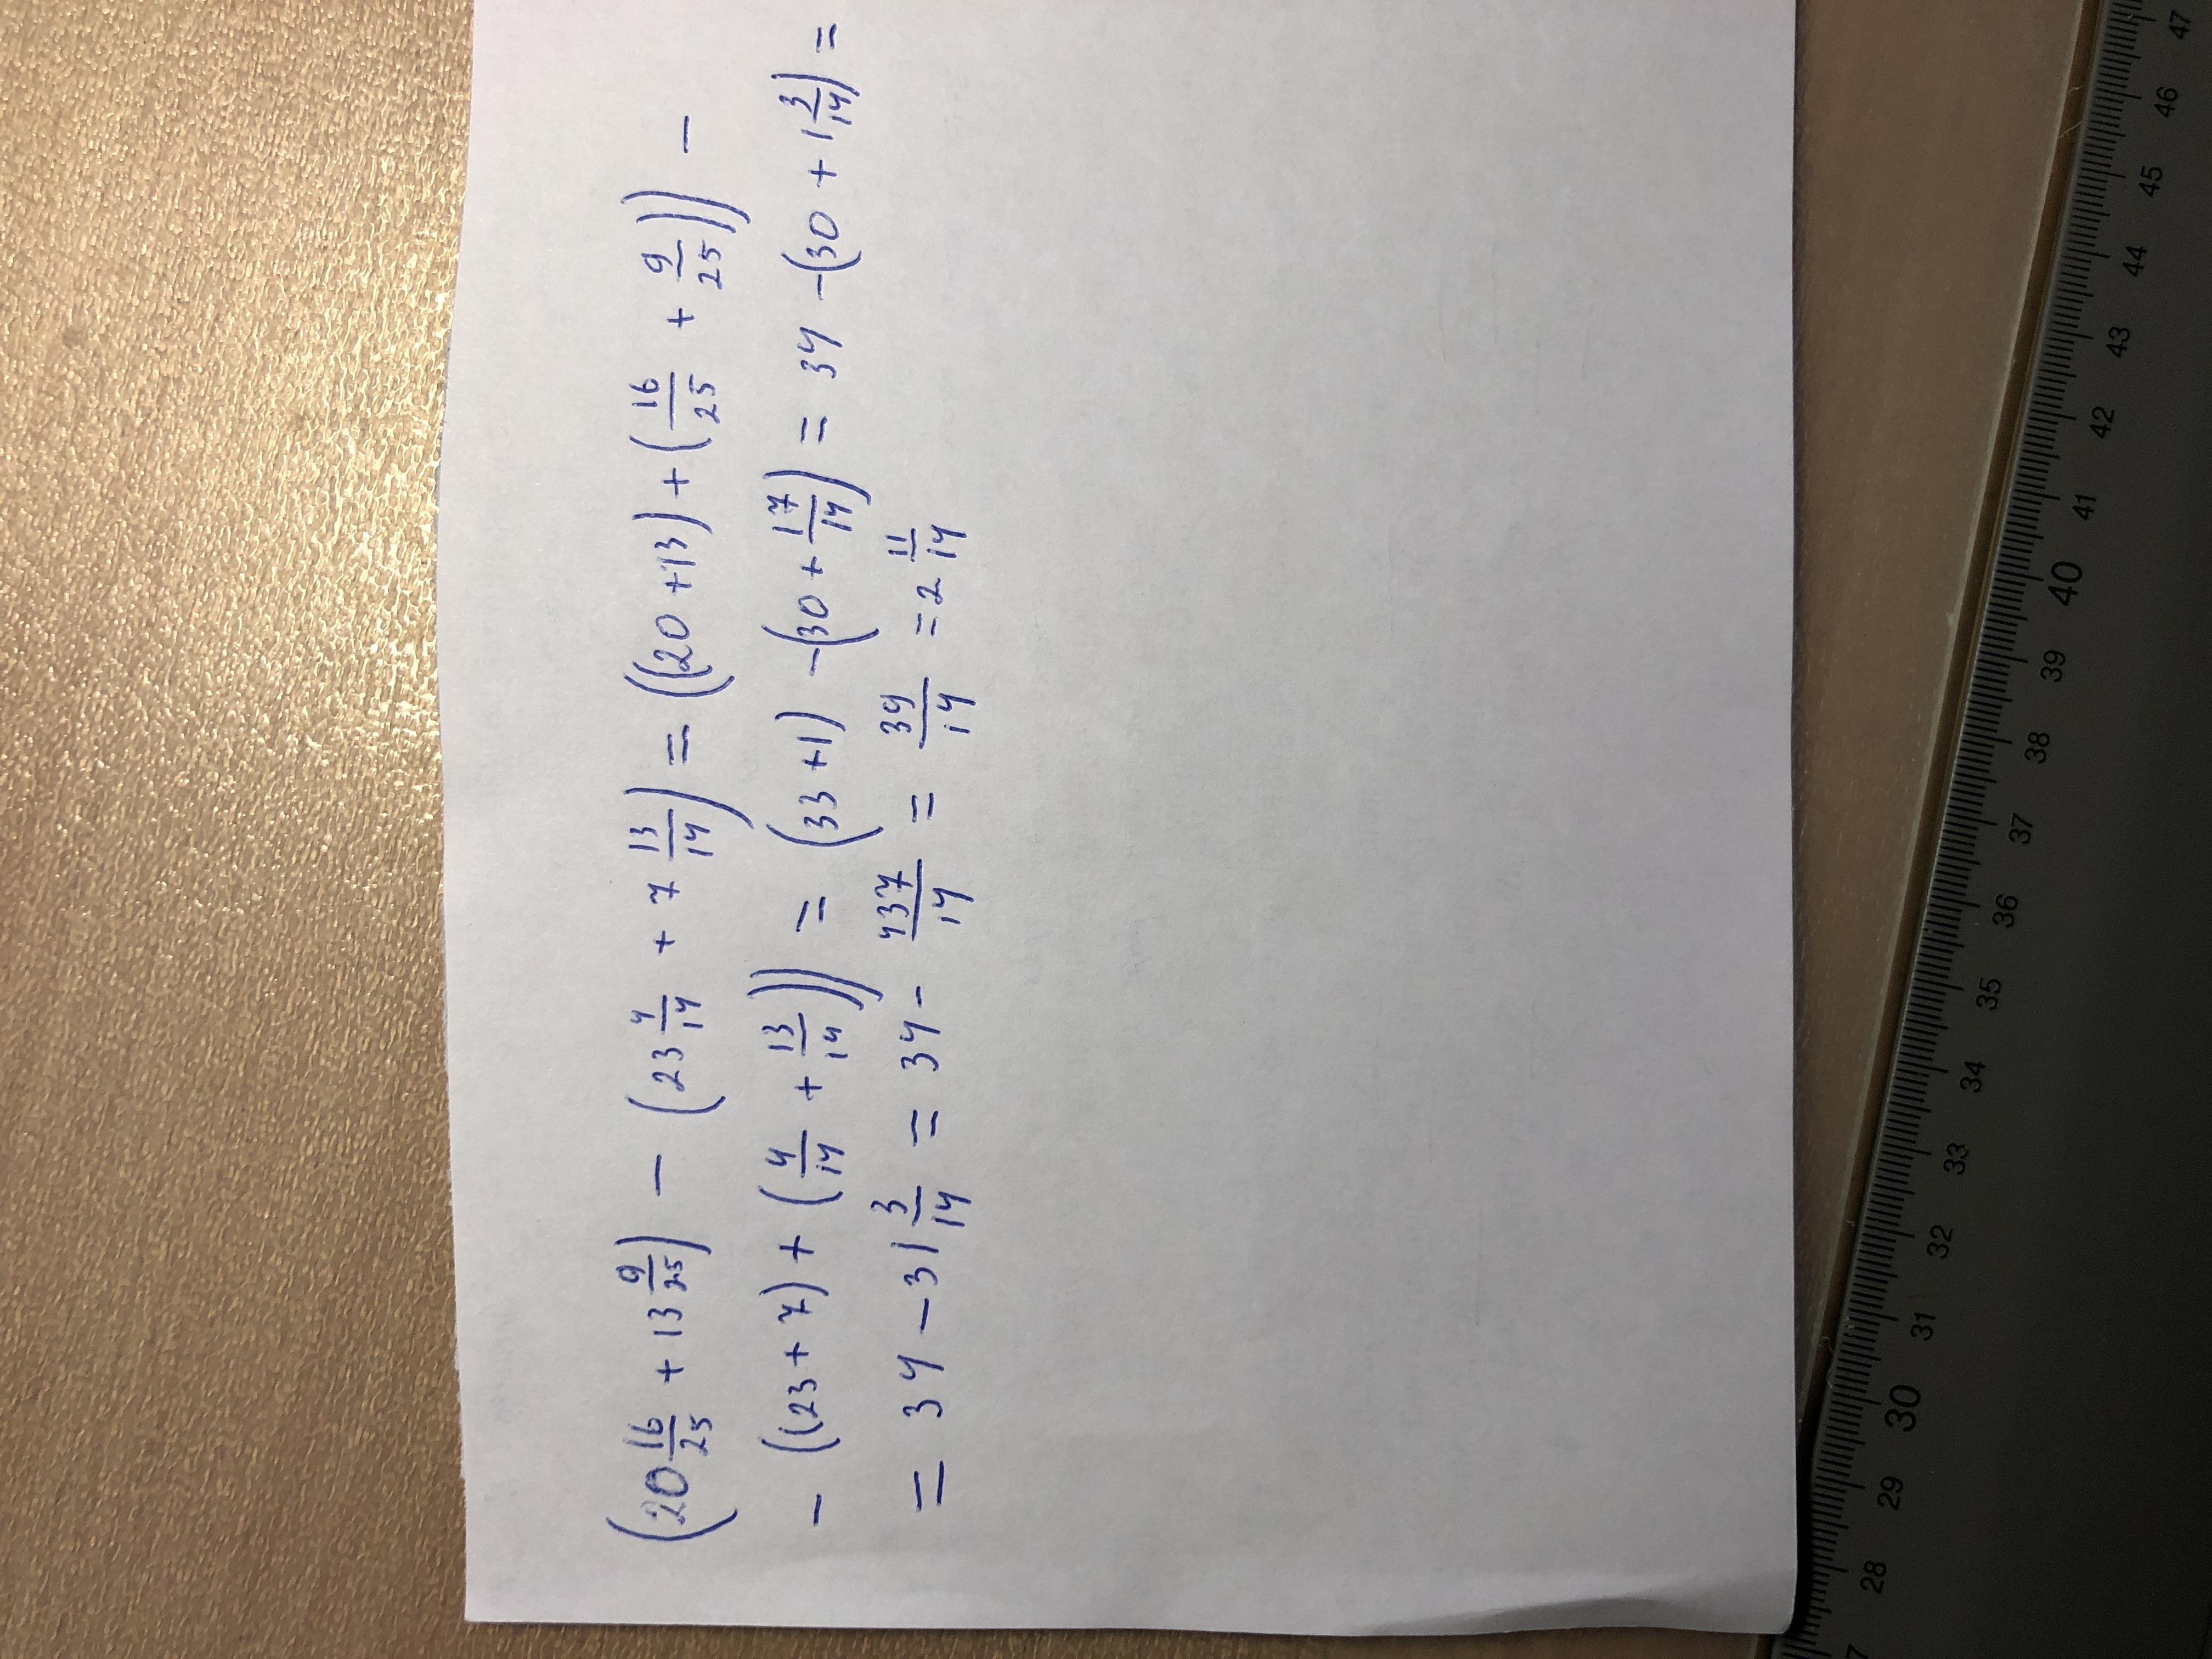 (20 16/25 + 13 9/25) - (23 4/14 + 7 13/14) = ((20+13) + (16/25 + 9/25)) -
- ((23+7) + (4/14 + 13/14)) = (33+1) - (30 + 17/14) = 34 - (30 + 1 3/14) =
= 34 - 31 3/14 = 34 - 437/14 = 39/14 = 2 11/14
28 29 30 31 32 33 34 35 36 37 38 39 40 41 42 43 44 45 46 47